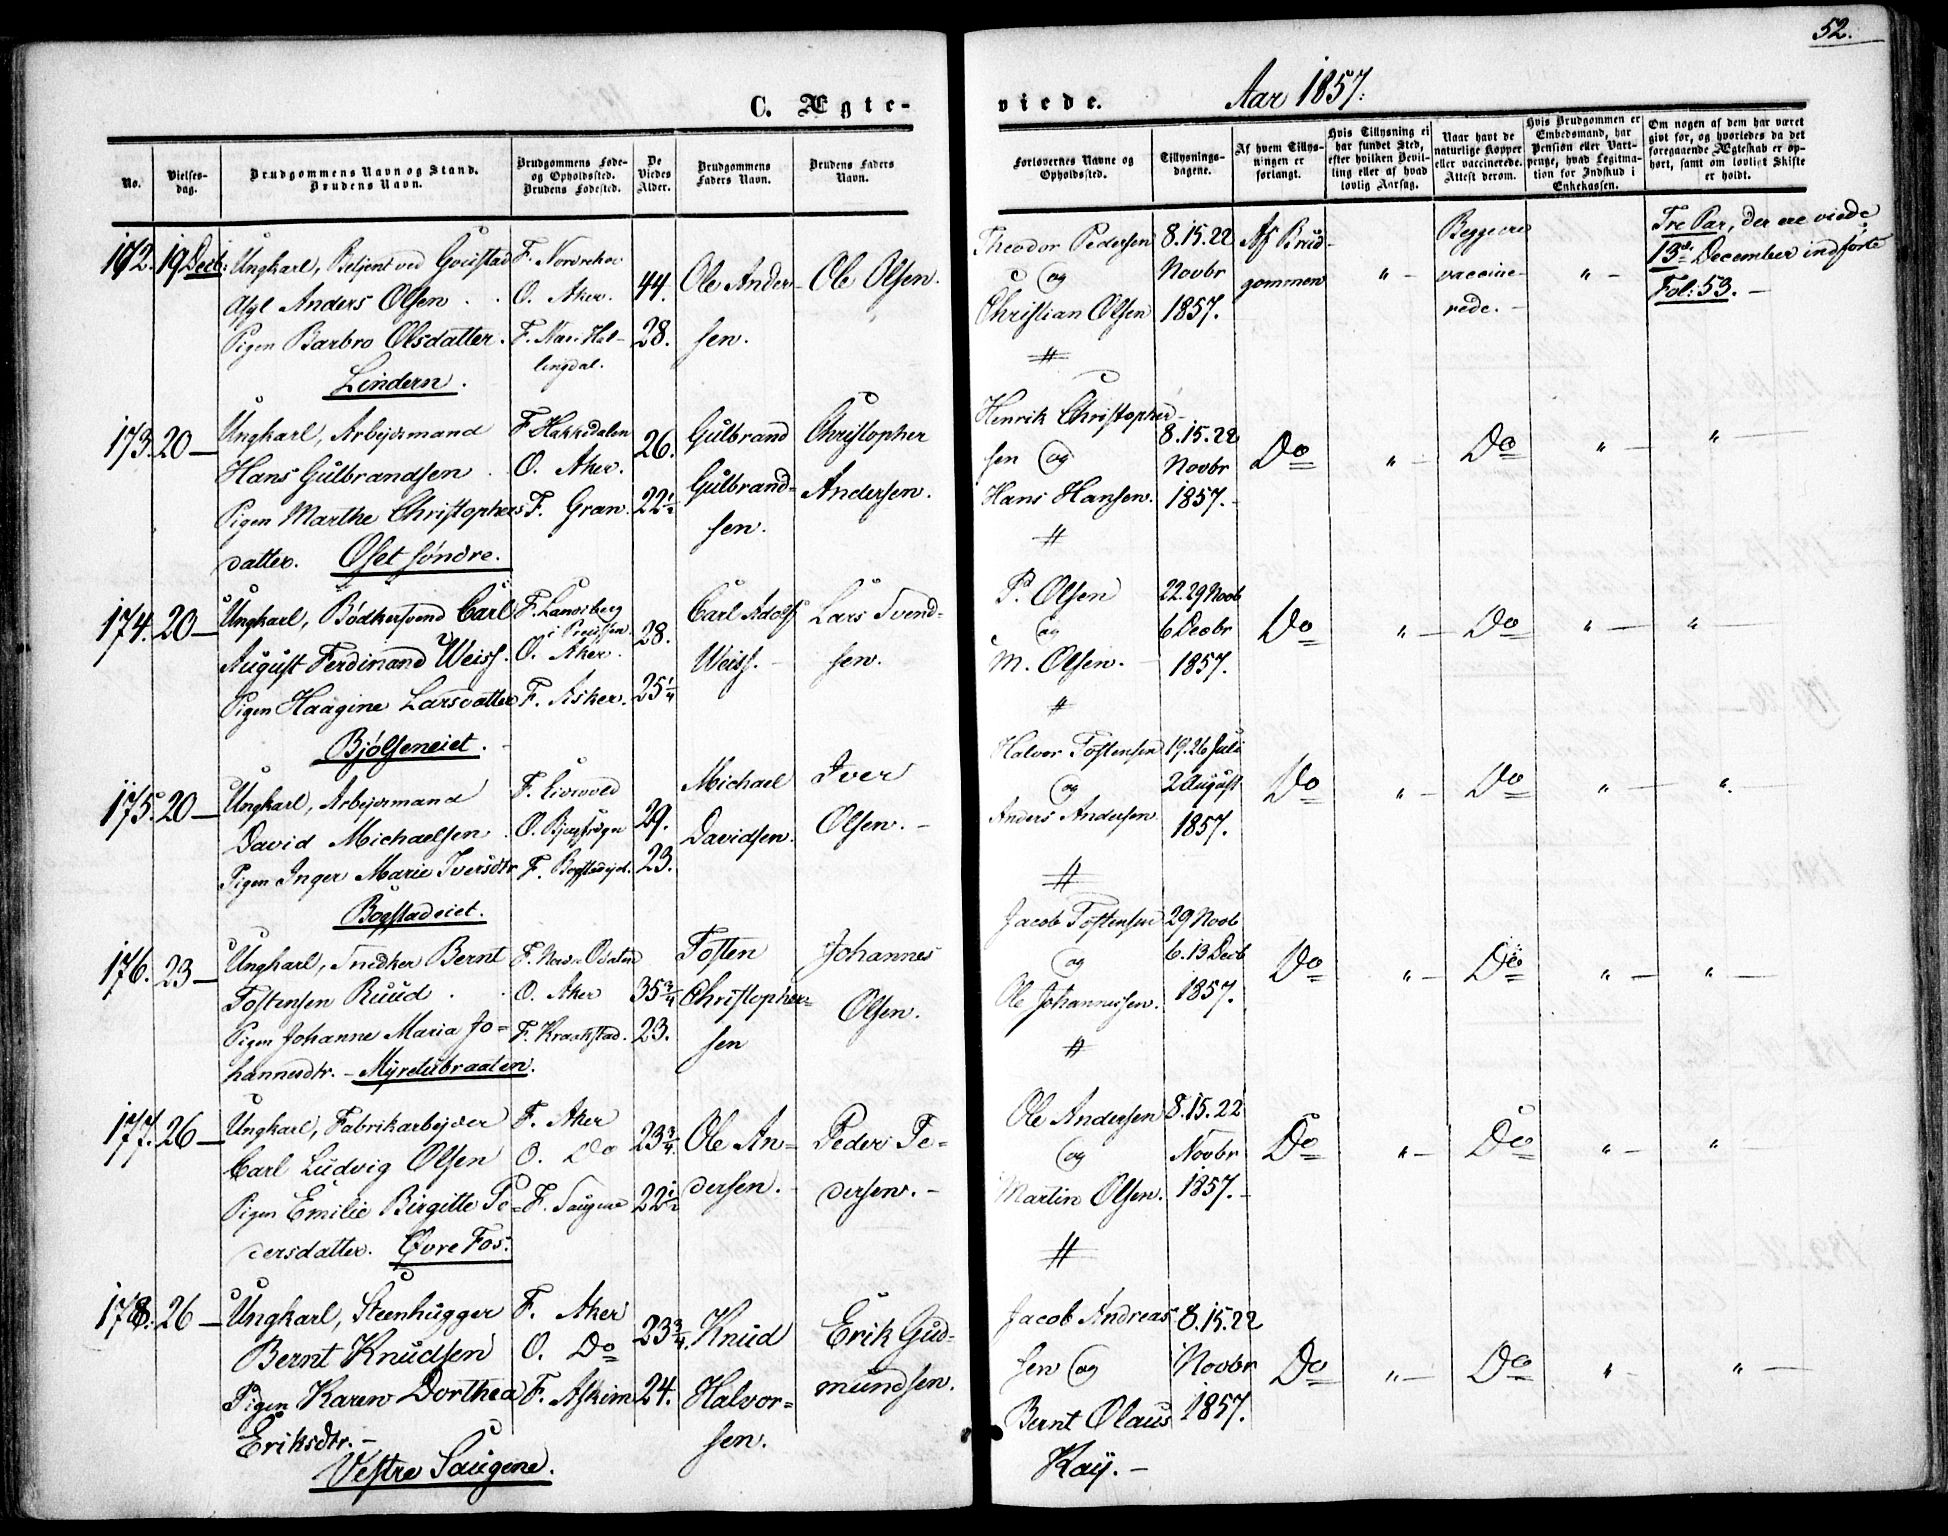 52.
C. Ægte-
viede.
Aar 1857.
No.
Vielses-
dag.
Brudgommens Navn og Stand.
Brudens Navn.
Brudgommens Føde-
og Opholdssted.
Brudens Fødested.
De
Viedes
Alder.
Brudgommens
Faders Navn.
Brudens Faders
Navn.
Forlovernes Navne og
Opholdssted.
Tillysnings-
dagene.
Af hvem Tillys-
ningen er
forlangt.
Hvis Tillysning ei
har fundet Sted,
efter hvilken Bevil-
ling eller af hvad
lovlig Aarsag.
Naar havt de
naturlige Kopper
eller vaccinerede.
Attest derom.
Hvis Brudgommen er
Embedsmand, har
Pension eller Vart-
penge, hvad Legitima-
tion for Indskud i
Enkekassen.
Om nogen af dem har været
gift før, og hvorledes da det
foregaaende Ægteskab er op-
hørt, samt om lovligt Skifte
er holdt.
172. 19 Decb:
Ungkarl, Betjent ved Goustad
Asyl Anders Olsen
Pigen Barbro Olsdatter.
Lindern.
O. Aker.
F. Næs Hal-
lingdal.
44.
28.
Ole Ander-
sen.
Ole Olsen.
Theodor Pedersen
og
Christian Olsen
8. 15. 22
Novbr
1857.
Af Brud-
gommen
" -
Begge ere
vaccine-
rede. -
" -
Tre Par, der ere viede
13de December indførte
Fol: 53. -
173. 20 -
Ungkarl, Arbejdsmand
Hans Gulbrandsen
Pigen Marthe Christophers
datter. Oset søndre.
F. Hakkedalen
O. Aker.
F. Gran.
26.
22½
Gulbrand
Gulbrand=
sen.
Christopher
Andersen.
Henrik Christopher-
sen og
Hans Hansen.
8. 15. 22
Novbr
1857. -
Do
" -
Do
" -
" -
174. 20 -
Ungkarl, Bødkersvend Carl
August Ferdinand Weiss.
Pigen Haagine Larsdatter
Bjølseneiet.
F. Landsberg
i Preussen.
O. Aker.
F. Asker.
28.
25¼
Carl Adolf
Weiss. -
Lars Svend-
sen.
P. Olsen
og
M. Olsen. -
22. 29 Novb
6 Decbr
1857.
Do
" -
Do
" -
" -
175. 20 -
Ungkarl, Arbejdsmand
David Michaelsen
Pigen Inger Marie Iversdtr
Bogstadeiet.
29.
23.
Michael
Davidsen.
Iver
Olsen. -
Halvor Tostensen
og
Anders Andersen
19. 26 Juli
2 August
1857.
Do
" -
Do
" -
" -
176. 23 -
Ungkarl, Snedker Bernt
Tostensen Ruud
Pigen Johanne Maria Jo=
hannesdtr. - Myrelubraaten.
F. Nordre Odalen
O. Aker
F. Kraakstad.
35¾
23.
Tosten
Christopher=
sen
Johannes
Olsen.
Jacob Tostensen
og
Ole Johannessen.
29 Novb
6. 13 Decb
1857.
Do
" -
Do
" -
" -
177. 26 -
Ungkarl, Fabrikarbejder
Carl Ludvig Olsen
Pigen Emilie Birgitte Pe=
dersdatter. Øvre Fos.
F. Aker
O. Do
F. Saugene
23¾.
22½
Ole An=
dersen. -
Peder Pe=
dersen. -
Ole Andersen
og
Martin Olsen.
8. 15. 22
Novbr
1857. -
Do
" -
Do
" -
" -
178. 26 -
Ungkarl, Steenhugger
Bernt Knudsen
Pigen Karen Dorthea
Eriksdtr. -
Vestre Saugene.
F. Aker
O. Do
F. Askim
23¾.
24.
Knud
Halvor=
sen.
Erik Gud=
mundsen.
Jacob Andreas
sen og
Bernt Olaus
Kay. -
8. 15. 22
Novbr
1857.
Do
" -
Do
" -
" -